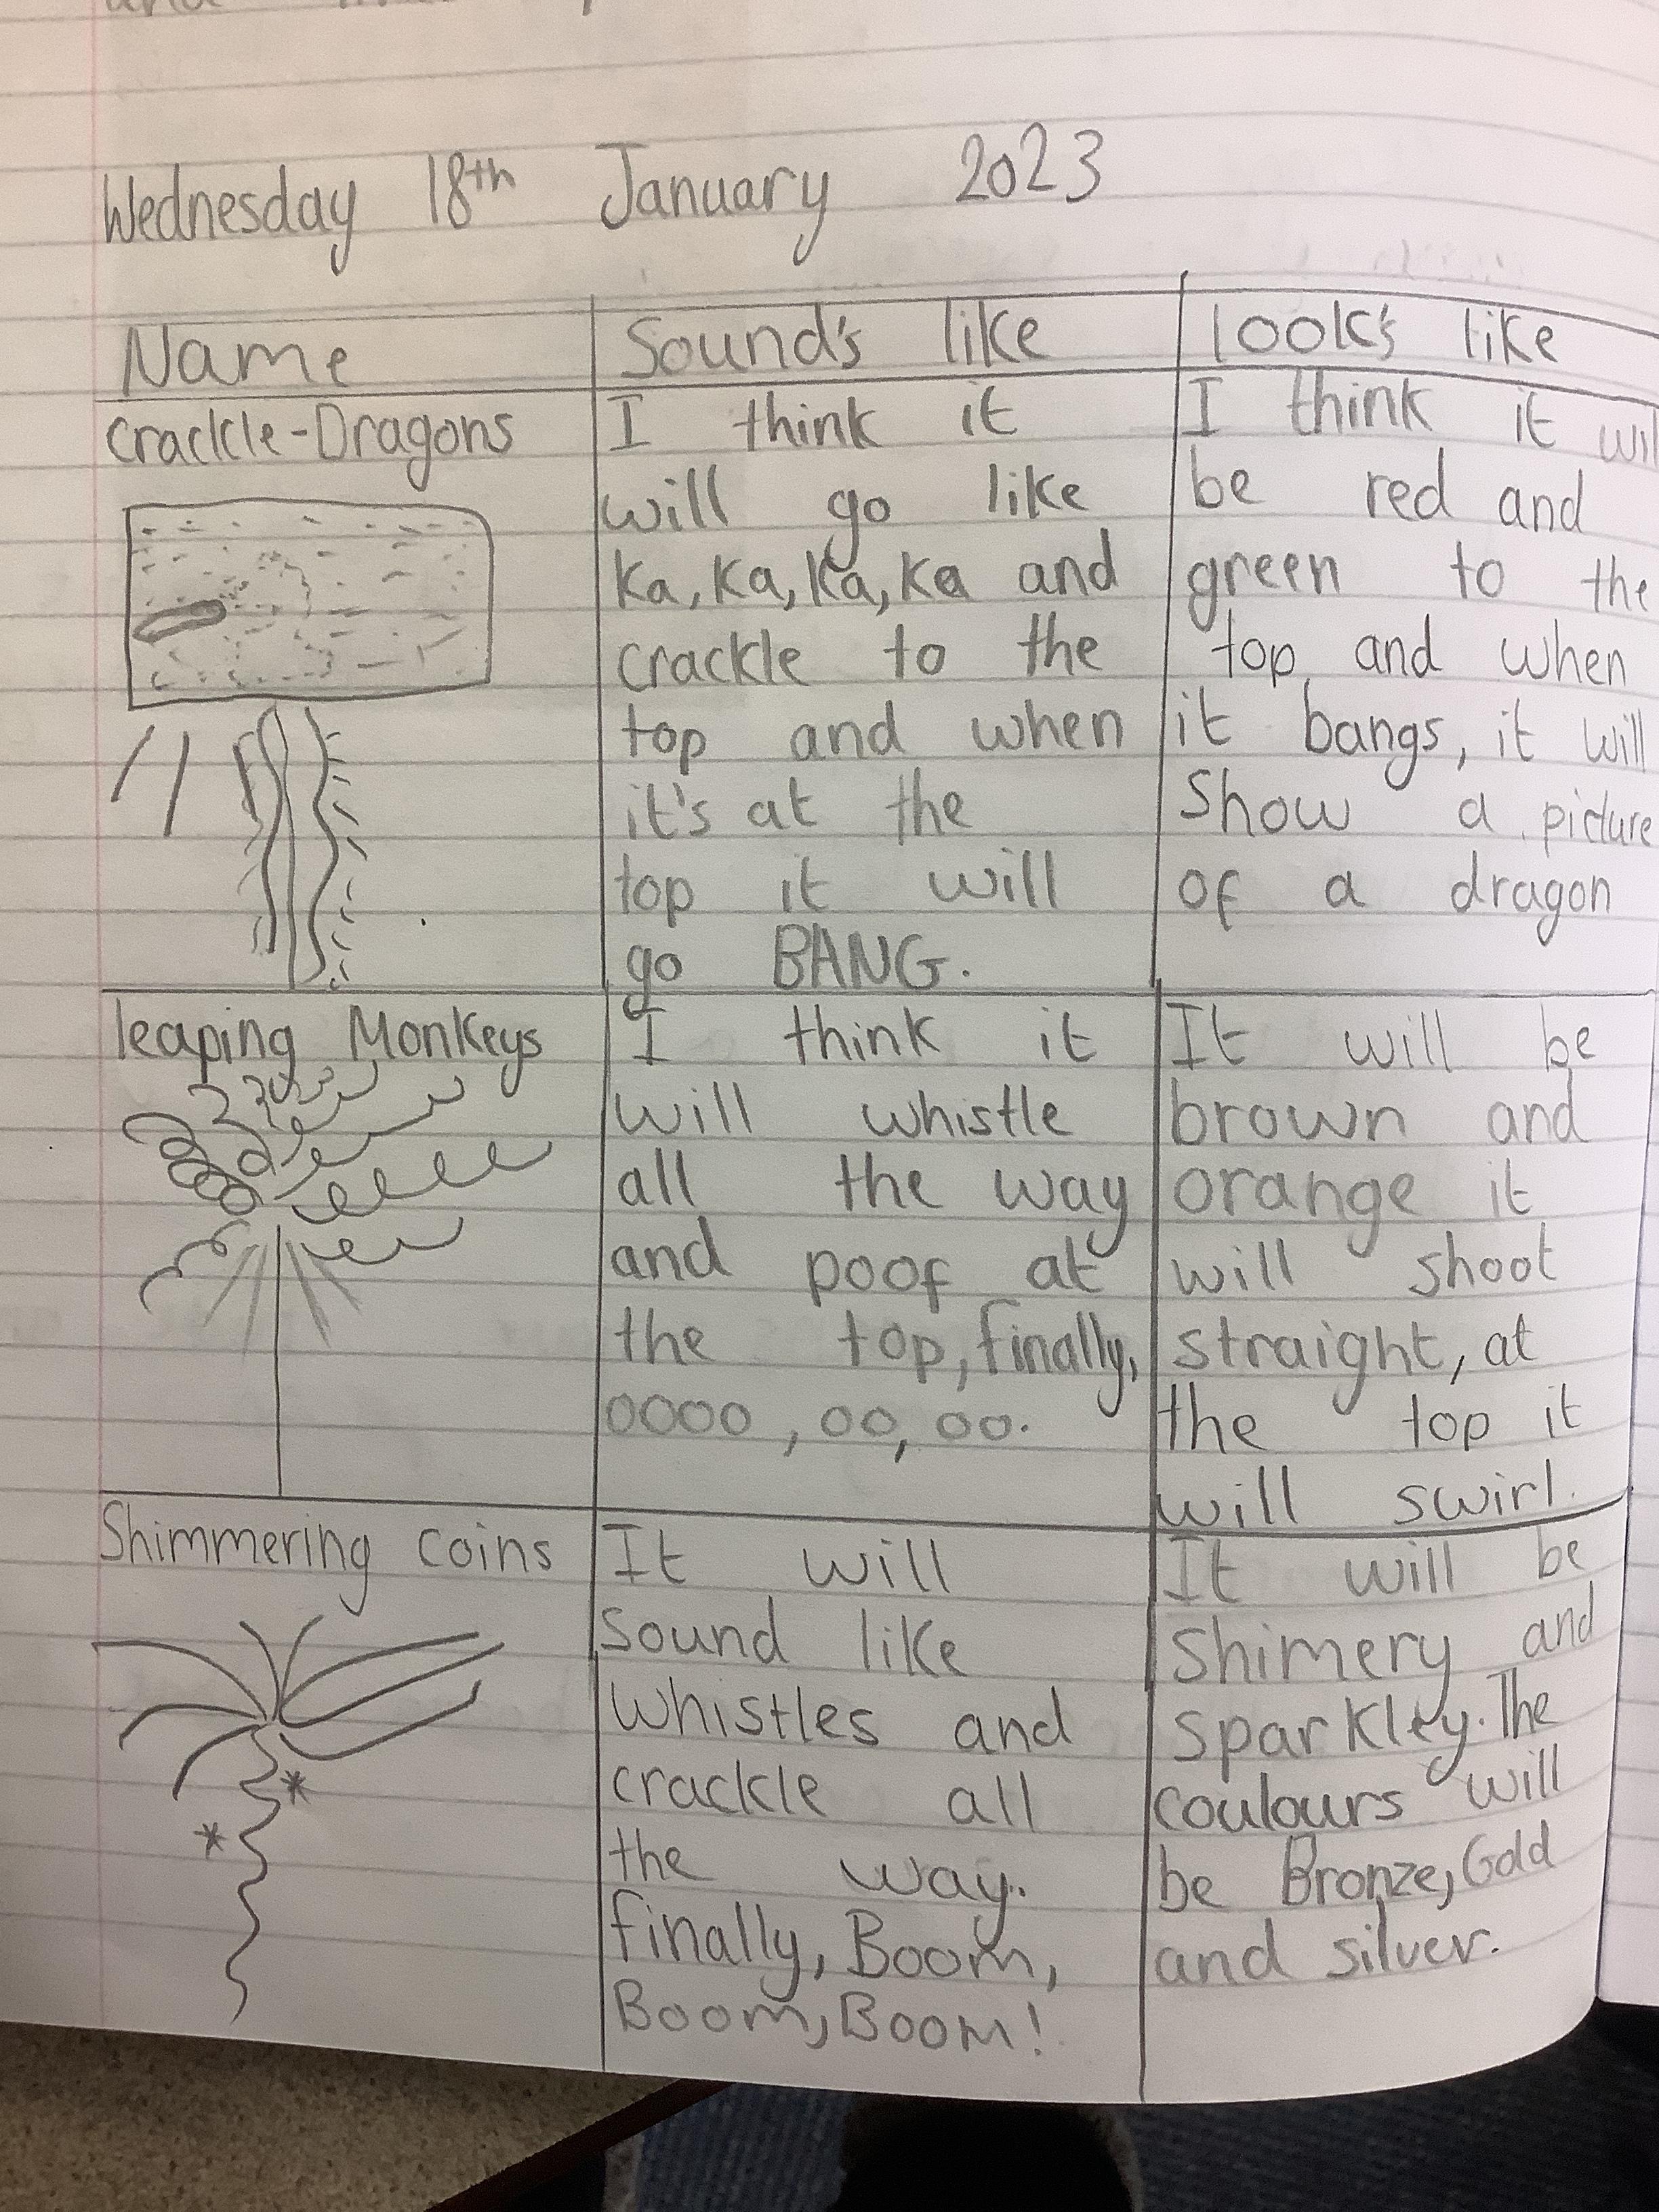 Wednesday 18th January 2023
Name
Sound's like
look's like
Crackle-Dragons
I think it
will go like
Ka, Ka, Ka, Ka and
crackle to the
top and when
it's at the
top it will
go BANG.
I think it will
be red and
green to the
top and when
it bangs, it will
show a picture
of a dragon
leaping Monkeys
I think it
will whistle
all the way
and poof at
the top, finally,
oooo, oo, oo.
It will be
brown and
orange it
will shoot
straight, at
the top it
will swirl.
Shimmering coins
It will
sound like
whistles and
crackle all
the way.
finally, Boom,
Boom, Boom!
It will be
shimery and
sparkley. The
coulours will
be Bronze, Gold
and silver.